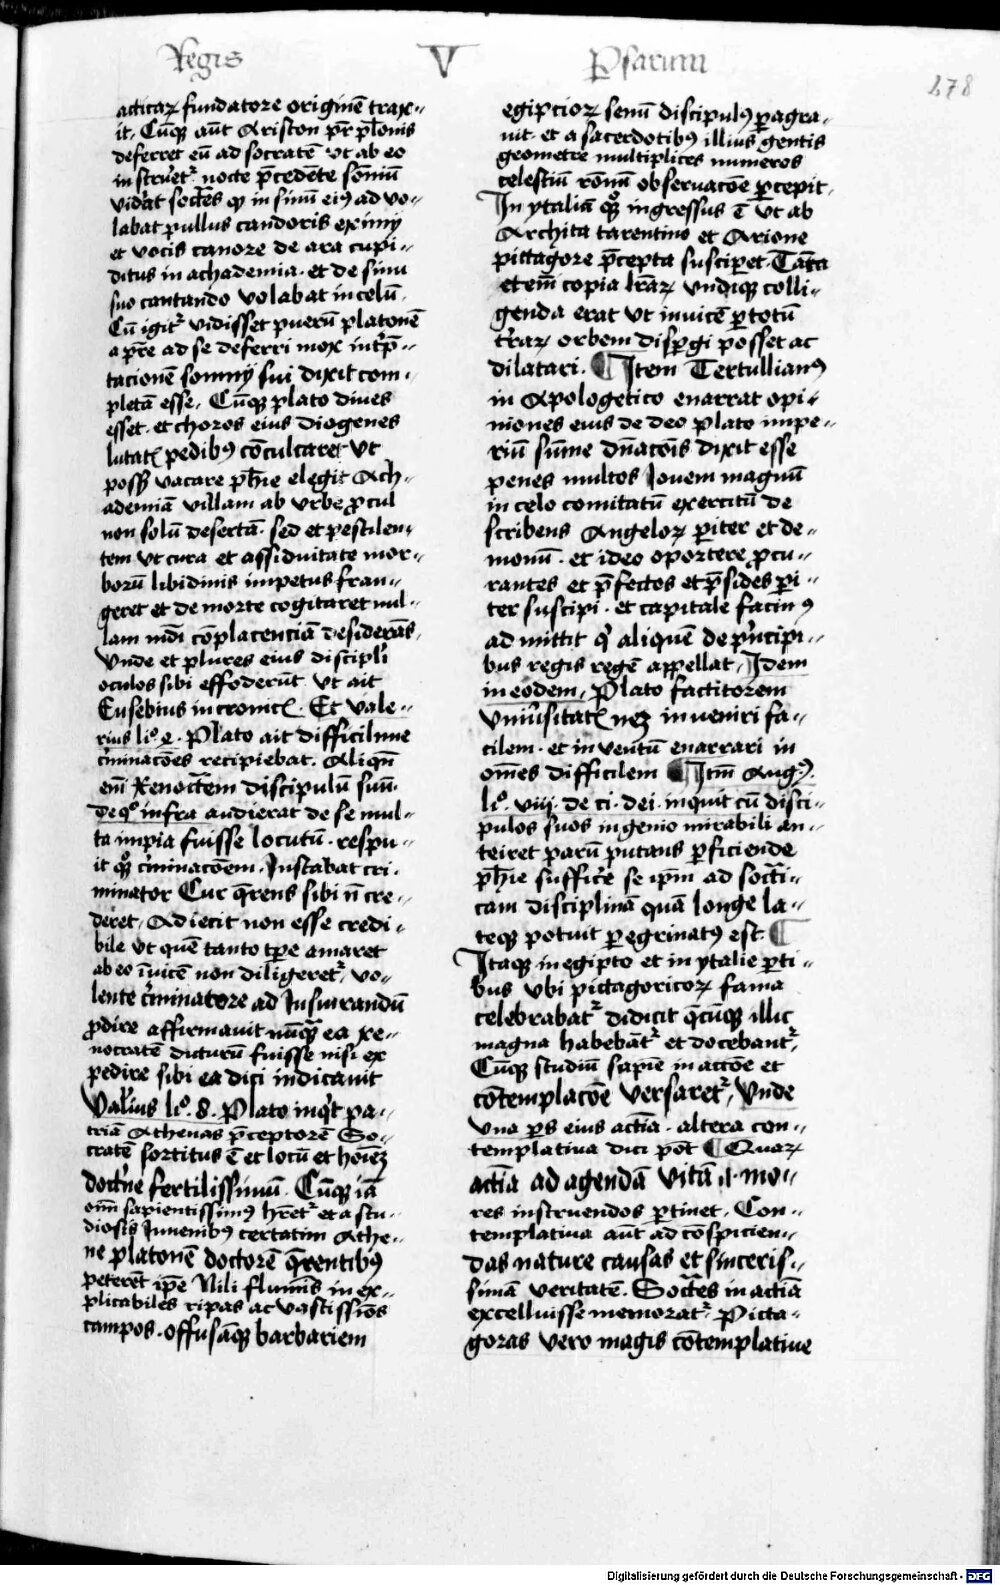 Regis V Psarum
178
acticaꝝ fundatore originē trax-
it. Cūqꝫ aūt Ariston pr̄ pl̄onis
deferret eū ad socratē ut ab eo
instruetᷣ nocte p̄cedēte somniū
vidͥat socͣtes ꝙ in sinū eiꝰ ad vo-
labat pullus candoris eximij
et vocis canore de ara cupi-
ditus in achademia. et de sinu
suo cantando volabat in celū.
Cū igitᷣ vidisset puerū platonē
a pr̄e ad se deferri mox int͛p̄-
tacionē somnij sui dixit com-
pletā esse. Cūqꝫ plato dives
esset. et choros eius diogenes
lutatꝭ pedibꝰ cōculcaret ut
possꝫ vacare ph̄ie elegit Ach-
ademiā villam ab urbe ꝓcul
non solū desertā. sed et pestilen-
tem ut cura et assiduitate mor-
borū libidinis impetus fran-
geret et de morte cogitaret nul-
lam mūdi cōplacenciā desiderās.
Unde et plures eius discipli
oculos sibi effoderūt ut ait
Eusebius in cronicꝭ. Et vale-
rius liº. 4. Plato ait difficilime
c͛minacōes recipiebat. Aliqn̄
em̄ Xenocͣtem discipulū suū.
de qº infra audierat de se mul-
ta impia fuisse locutū. respu-
it qºꝫ c͛minacōem. Instabat cri-
minator Cur q̄rens sibi nō cre-
deret. Adiecit non esse credi-
bile ut quē tanto tꝑe amaret
ab eo īvicē non diligeretᷣ. vo-
lente c͛minatore ad Jusiurandū
ꝓdire affirmavit nūqͣꝫ ea xe-
nocratē dicturū fuisse nisi ex
pedire sibi ea dici indicavit
Val͛ius liº. 8. Plato inqͥt pa-
triā Athenas p̄ceptorē So-
cratē sortitus ē et locū et hoīeꝫ
doctͥne fertilissimū. Cūqꝫ iā
oīm sapientissimꝰ hr̄etᷣ et a stu-
diosis Juvenibꝰ certatim Athe-
ne platonē doctorē q̄rentibꝰ
peterēt ip̄e Nili flumīs in ex-
plicabiles ripas ac vastissīos
campos. offusāqꝫ barbariem
egipcioꝝ senū discipulꝰ ꝑagra-
vit. et a sacerdotibꝰ illius gentis
geometre multiplices numeros
celestiū rōnū observacōe ꝑcepit.
In ytaliā qºꝫ ingressus ē ut ab
Archita tarentino et Arione
pictagore p̄cepta susciꝑet. Tāta
etem̄ copia lr̄aꝝ undiqꝫ colli-
genda erat ut invicē ꝑ totū
t͛raꝝ orbem disꝑgi posset ac
dilatari. ¶ Item Tertullianꝰ
in Apologetico enarrat opi-
niones eius de deo plato impe-
riū sūme dn̄acōis dixit esse
penes multos Jovem magnū
in celo comitatū exercitū de
scribens Angeloꝝ ꝑiter et de-
monū. et ideo oportere ꝓcu-
rantes et p̄fectos et p̄sides ꝑi-
ter suscipi. et capitale facinꝰ
admittit qͥ aliquē de pͥncipi-
bus regis regē appellat. Idem
in eodem. Plato factitorem
univ͛sitatꝭ neqꝫ inveniri fa-
cilem. et inventū enarrari in
om̄es difficilem ¶ Itm̄ Augꝰ.
liº. viii. de ci. dei. inquit cū disci-
pulos suos ingenio mirabili an-
teiret parū putans ꝑficiende
ph̄ie suffic͛e se ip̄m ad socͣti-
cam disciplinā quā longe la-
teqꝫ potuit ꝑegrinatꝰ est. ¶
Itaqꝫ in egipto et in ytalie ꝑti-
bus ubi pictagoricoꝝ fama
celebrabatᷣ didicit q̄cūqꝫ illic
magna habebātᷣ et docebantᷣ.
Cūqꝫ studiū sapīe in accōe et
cōtemplacōe versaretᷣ, Unde
una ꝑs eius actīa. altera con-
templativa dici pōt ¶ Quaꝝ
actīa ad agendā vitā .i. mo-
res instruendos ꝑtinet. Con-
templativa aūt ad cōspicien-
das nature causas et sinceris-
simā veritatē. Socͣtes in actīa
excelluisse memoratᷣ. Picta-
goras vero magis cōtemplative
Digitalisierung gefördert durch die Deutsche Forschungsgemeinschaft - DFG